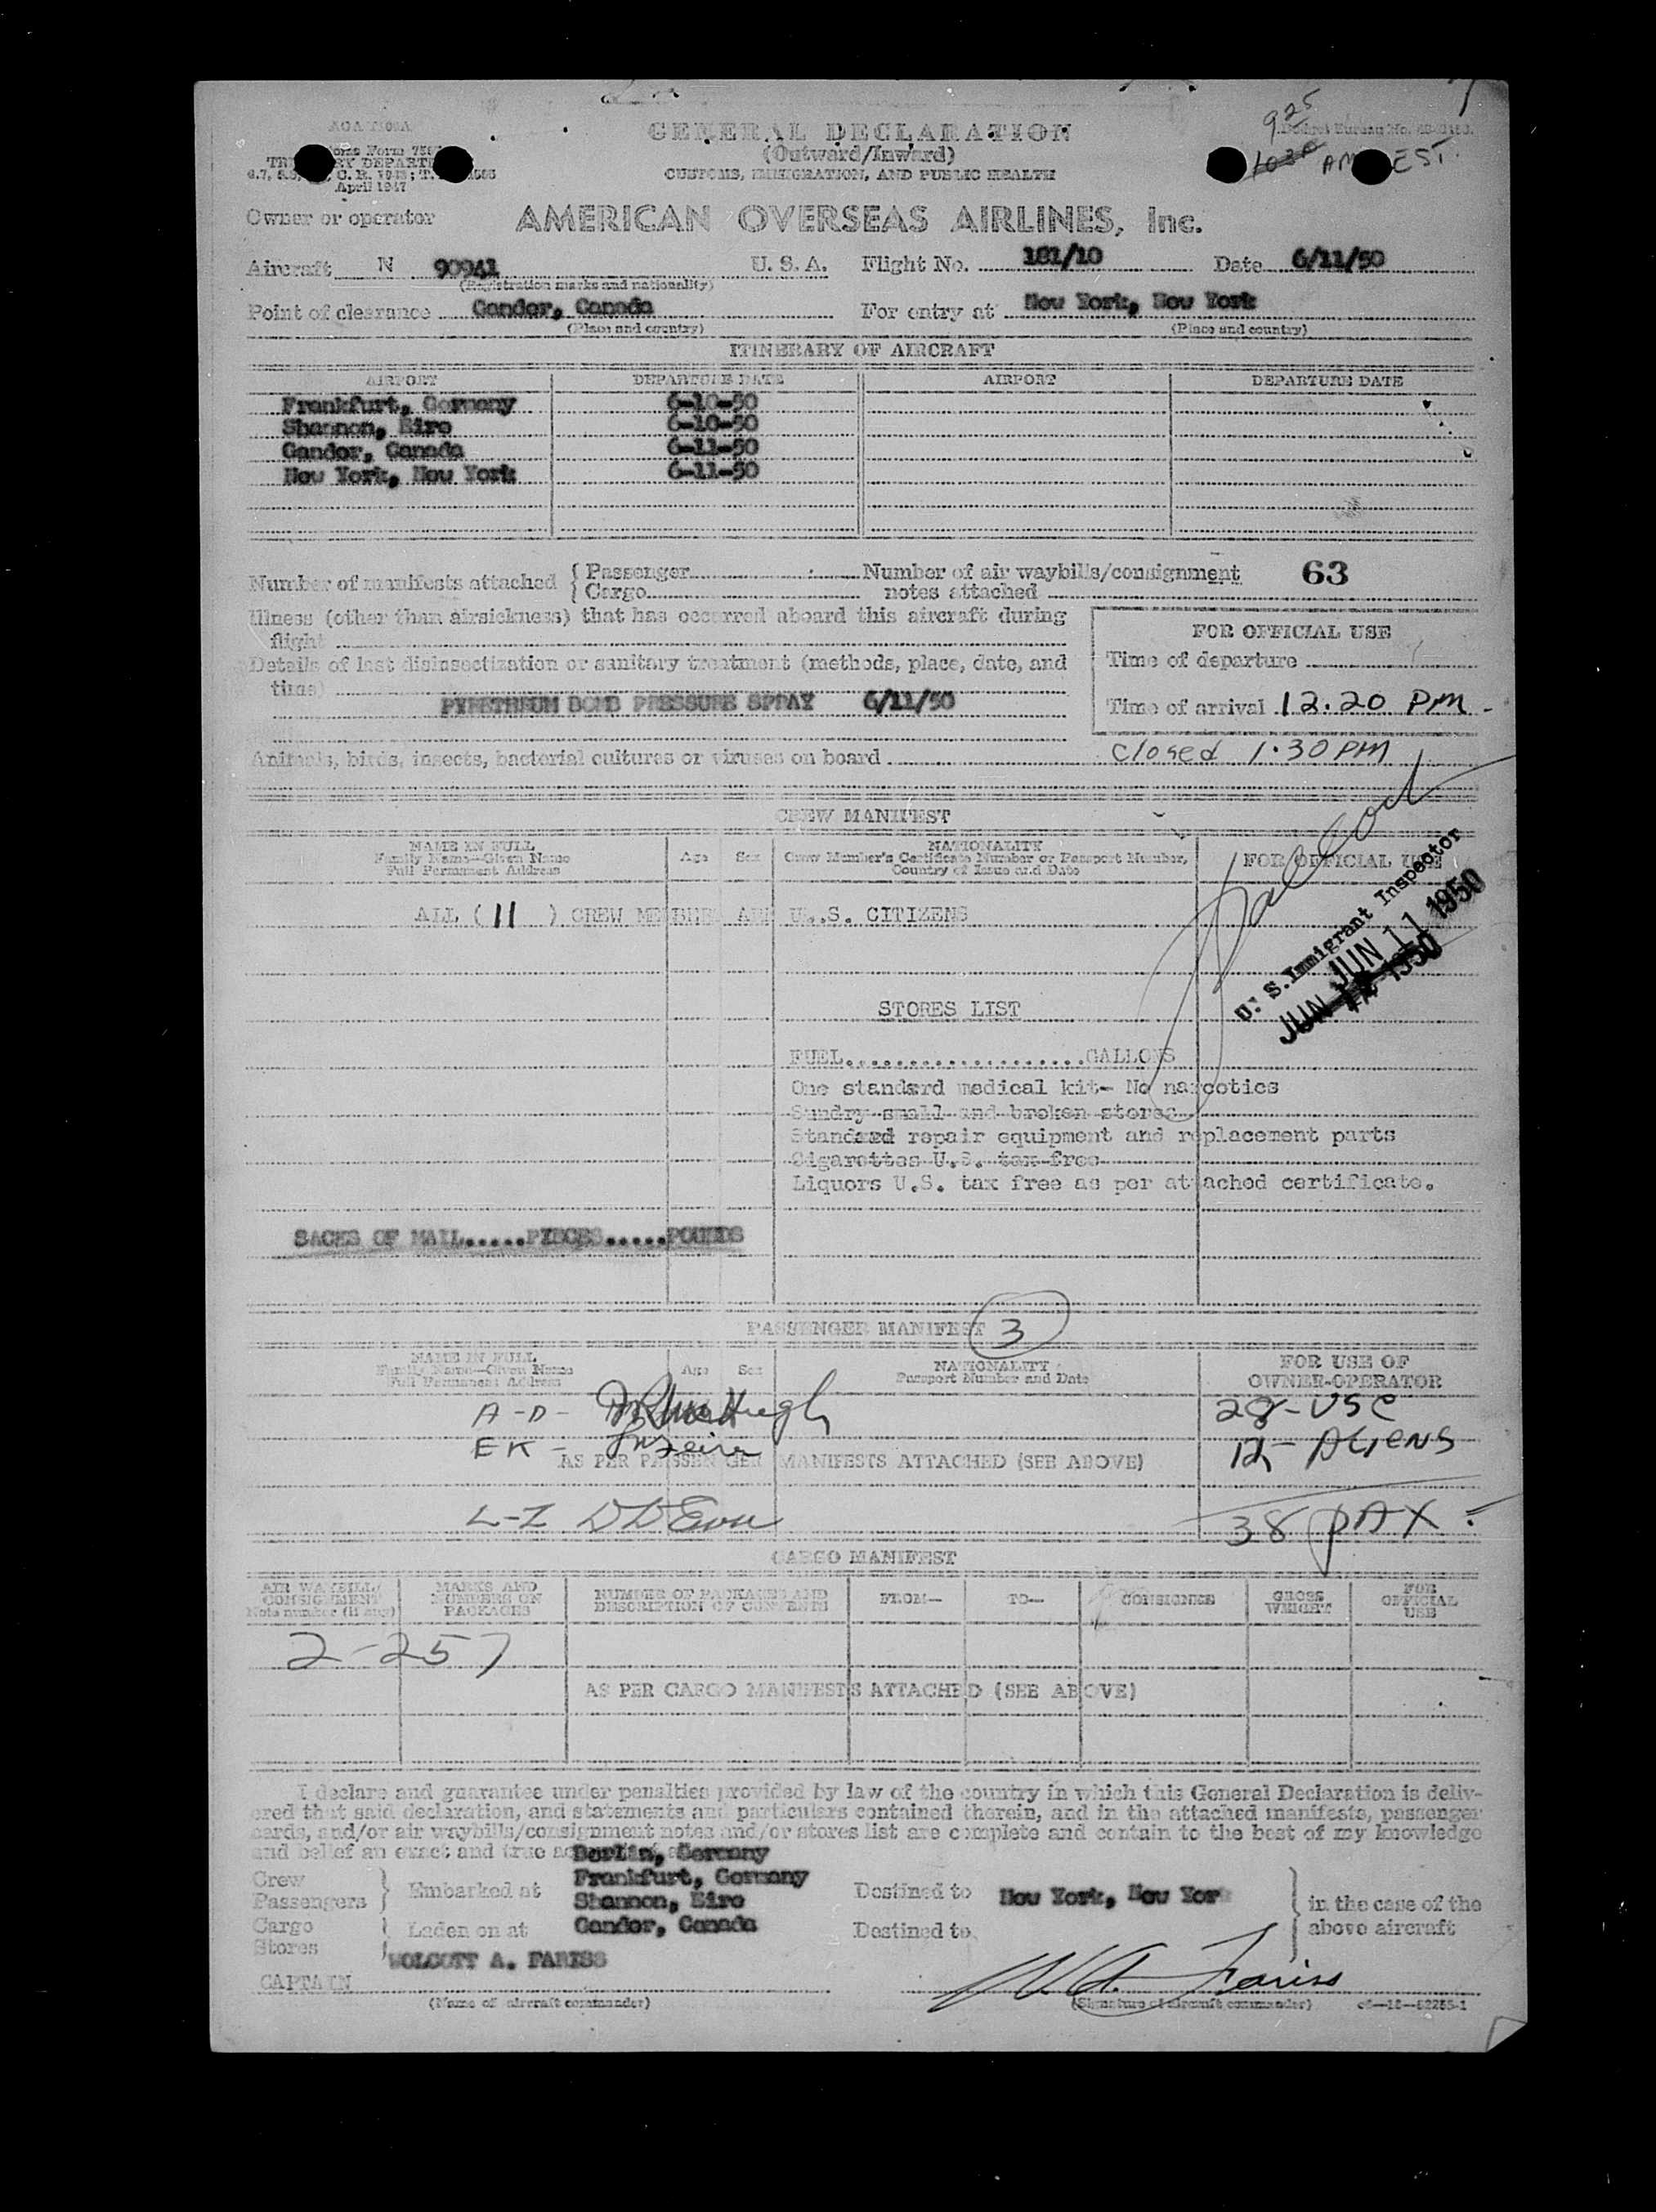 GENERAL DECLARATION
(Outward/Inward)
CUSTOMS, IMMIGRATION, AND PUBLIC HEALTH
925
1030 AM EST.
April 1947
Owner or operator AMERICAN OVERSEAS AIRLINES, Inc.
Aircraft N 90941 U. S. A. Flight No. 181/10 Date 6/11/50
(Registration marks and nationality)
Point of clearance Gander, Canada For entry at New York, New York
(Place and country) (Place and country)
ITINERARY OF AIRCRAFT
AIRPORT DEPARTURE DATE AIRPORT DEPARTURE DATE
Frankfurt, Germany 6-10-50
Shannon, Eire 6-10-50
Gander, Canada 6-11-50
New York, New York 6-11-50
Number of manifests attached { Passenger Number of air waybills/consignment 63
Cargo notes attached
Illness (other than airsickness) that has occurred aboard this aircraft during
flight
FOR OFFICIAL USE
Details of last disinsectization or sanitary treatment (methods, place, date, and
time)
Time of departure
PYRETHRUM BOMB PRESSURE SPRAY 6/11/50
Time of arrival 12.20 PM -
Animals, birds, insects, bacterial cultures or viruses on board
closed 1.30 PM
CREW MANIFEST
NAME IN FULL
Family Name—Given Name
Full Permanent Address
Age Sex
NATIONALITY
Crew Member's Certificate Number or Passport Number,
Country of Issue and Date
FOR OFFICIAL USE
ALL ( 11 ) CREW MEMBERS ARE U.S. CITIZENS
U. S. Immigrant Inspector
JUN 11 1950
JUN 12 1950
STORES LIST
FUEL...................GALLONS
One standard medical kit- No narcotics
Sundry small and broken stores
Standard repair equipment and replacement parts
Cigarettes U.S. tax free
Liquors U.S. tax free as per attached certificate.
SACKS OF MAIL.....PIECES.....POUNDS
PASSENGER MANIFEST 3
NAME IN FULL
Family Name—Given Name
Full Permanent Address
Age Sex
NATIONALITY
Passport Number and Date
FOR USE OF
OWNER-OPERATOR
A-D-
28-USC
EK-
12- ALIENS
AS PER PASSENGER MANIFESTS ATTACHED (SEE ABOVE)
L-Z
38 PAX
CARGO MANIFEST
AIR WAYBILL/
CONSIGNMENT
Note number (if any)
MARKS AND
NUMBERS ON
PACKAGES
NUMBER OF PACKAGES AND
DESCRIPTION OF CONTENTS
FROM— TO— CONSIGNEE
GROSS
WEIGHT
FOR
OFFICIAL
USE
2-257
AS PER CARGO MANIFESTS ATTACHED (SEE ABOVE)
I declare and guarantee under penalties provided by law of the country in which this General Declaration is deliv-
ered that said declaration, and statements and particulars contained therein, and in the attached manifests, passenger
cards, and/or air waybills/consignment notes and/or stores list are complete and contain to the best of my knowledge
and belief an exact and true
Berlin, Germany
Crew
Passengers } Embarked at Frankfurt, Germany
Shannon, Eire
Destined to New York, New Yor
in the case of the
above aircraft
Cargo
Stores } Laden on at Gander, Canada Destined to
WOLCOTT A. FARISS
CAPTAIN
W. A. Fariss
(Name of aircraft commander) (Signature of aircraft commander)